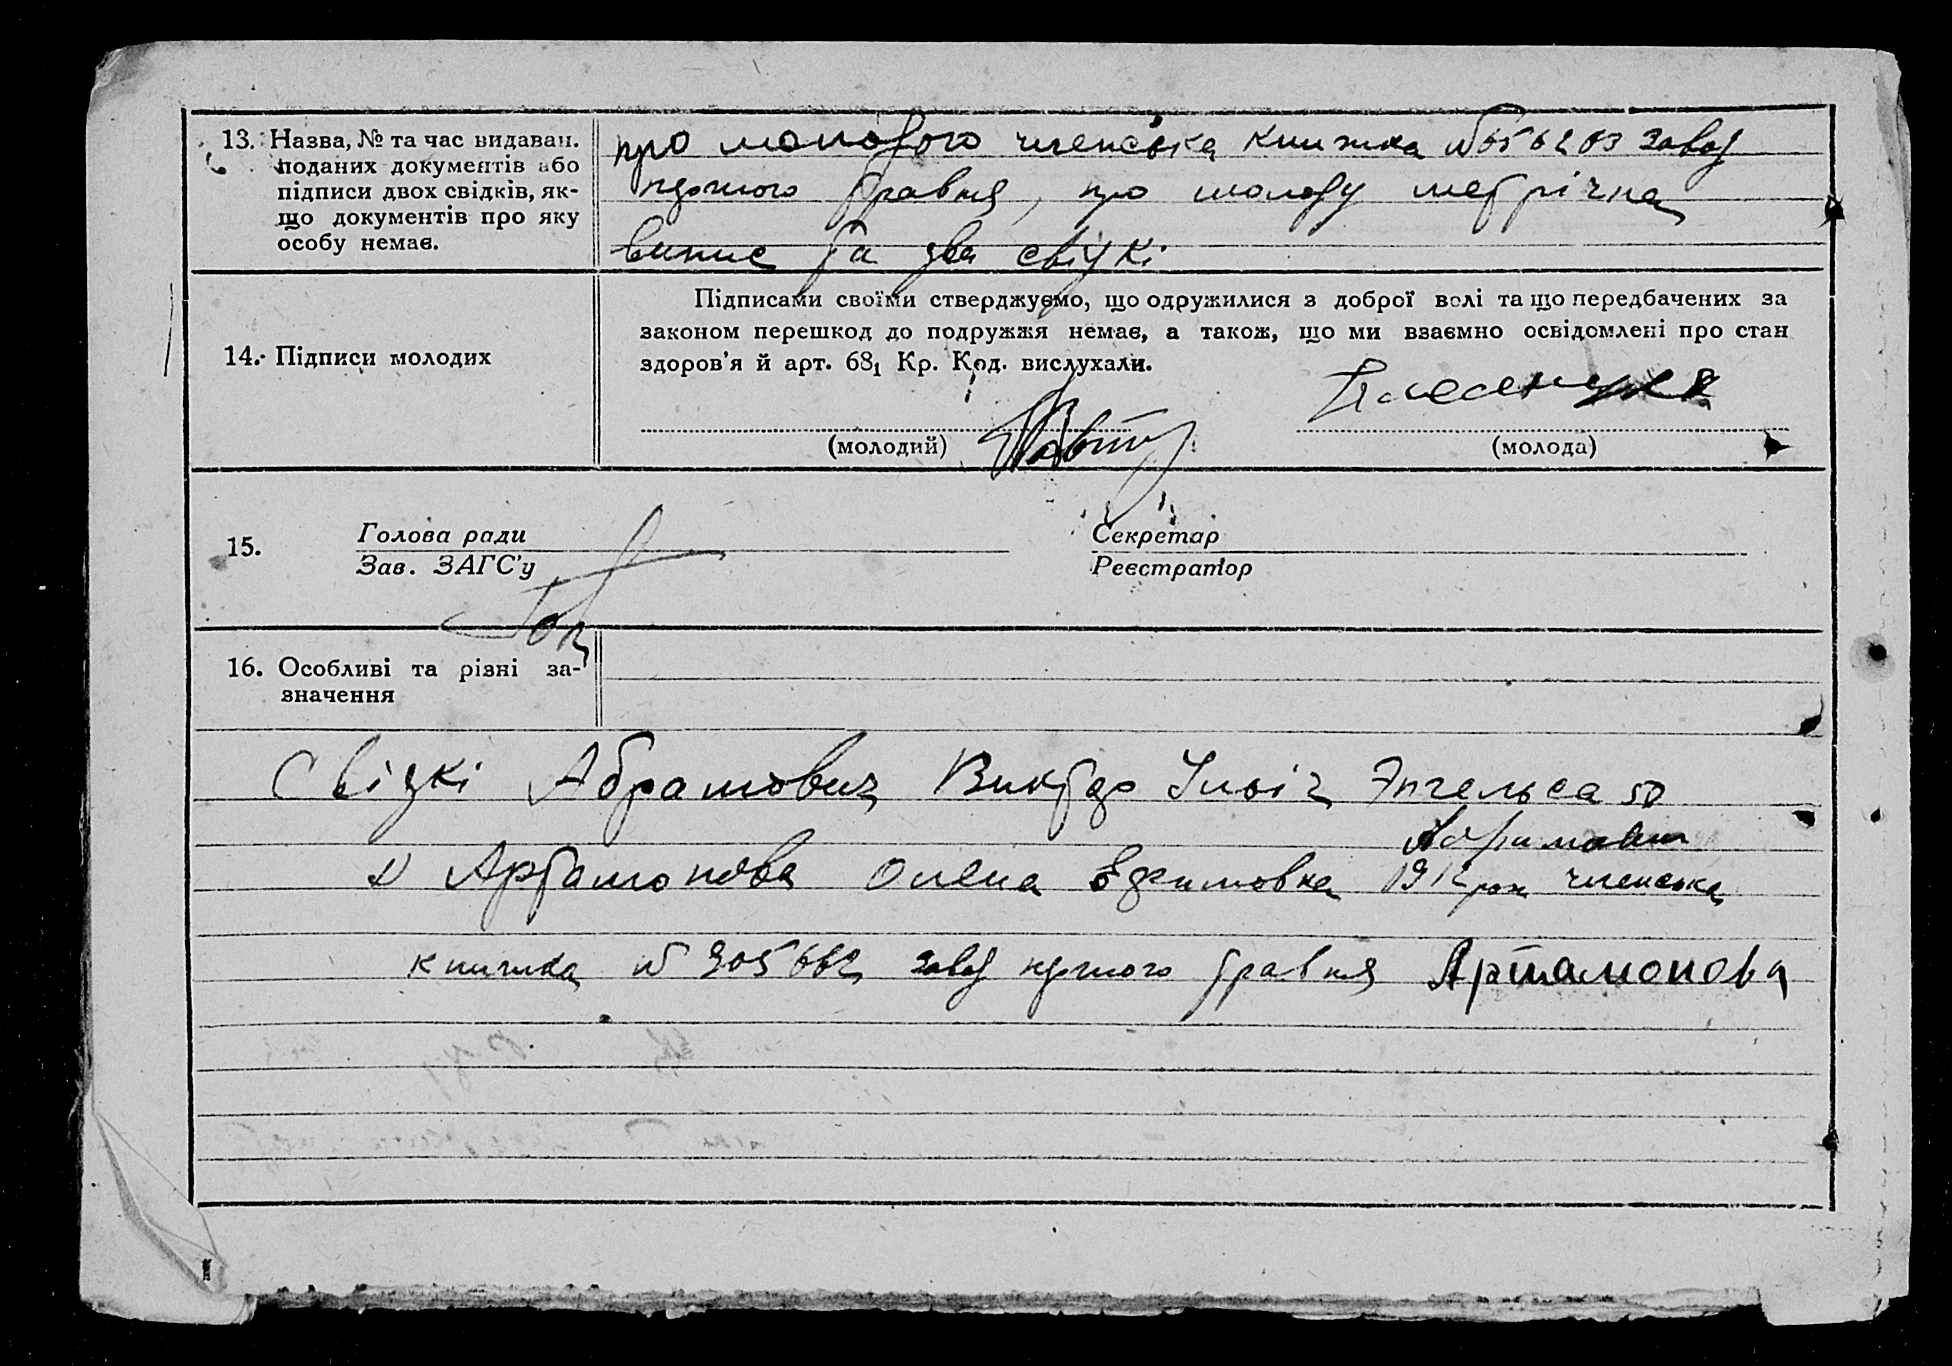 13. Назва, № та час видаван.
поданих документів або
підписи двох свідків, як-
що документів про яку
особу немає.
про молодого членська книжка № 656203 завод
першого травня, про молоду метрічна
випис та два свідкі
14. Підписи молодих
Підписами своїми стверджуємо, що одружилися з доброї волі та що передбачених за
законом перешкод до подружжя немає, а також, що ми взаємно освідомлені про стан
здоров'я й арт. 68₁ Кр. Код. вислухали.
(молодий) (молода)
15. Голова ради Секретар
Зав. ЗАГС'у Реєстратор
16. Особливі та різні за-
значення
Свідкі Абрамович Виктор Ильіч Энгельса 50
Абрамович
Артамонова Олена Ефимовна 1912 рож членська
книжка № 305662 завод першого травня Артамонова